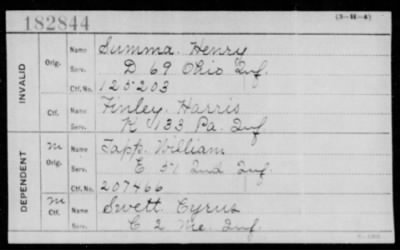 182844
(3—H—4)
INVALID
Orig. Name Summa. Henry
Serv. D 69 Ohio Inf.
Ctf. No. 125203
Ctf. Name Finley. Harris
Serv. K 133 Pa. Inf
DEPENDENT
M Orig. Name Tapp. William
Serv. E 51 Ind Inf.
Ctf. No. 207466
M Ctf. Name Swett. Cyrus
Serv. C 2 Me. Inf.